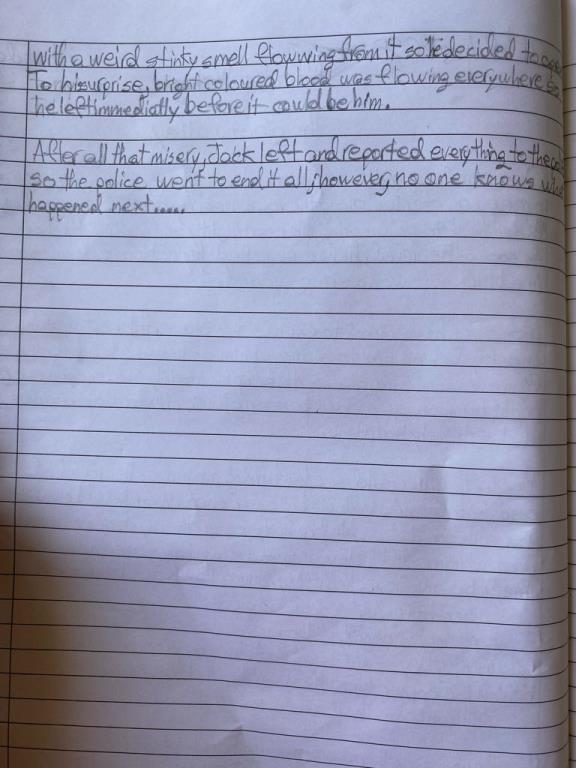 with a weird stinky smell flowwing from it so he decided to
To his surprise, bright coloured blood was flowing everywhere so
he left immediatly before it could be him.
After all that misery, Jack left and reported everything to the
so the police went to end it all; however, no one knows
happened next.....